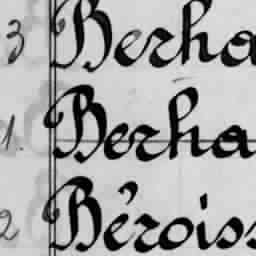 3 Berha
1. Berha
2 Béroiss